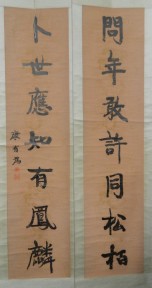 問年敢許同松柏
卜世應知有鳳麟
康有為